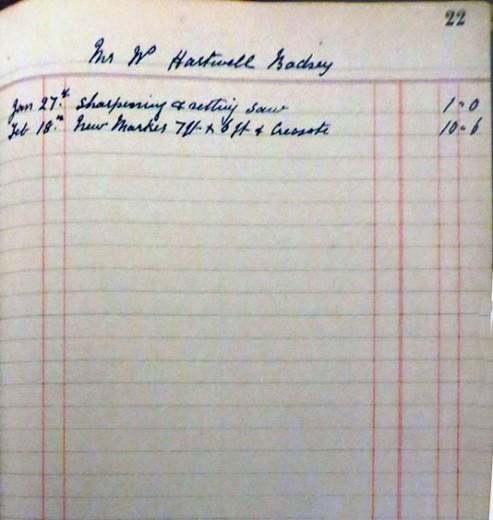 22
Mr Wm Hartwell Badsey
Jan 27th Sharpening & setting saw 1 - 0
Feb 18th New Marker 7ft x 6ft & Creosote 10 - 6